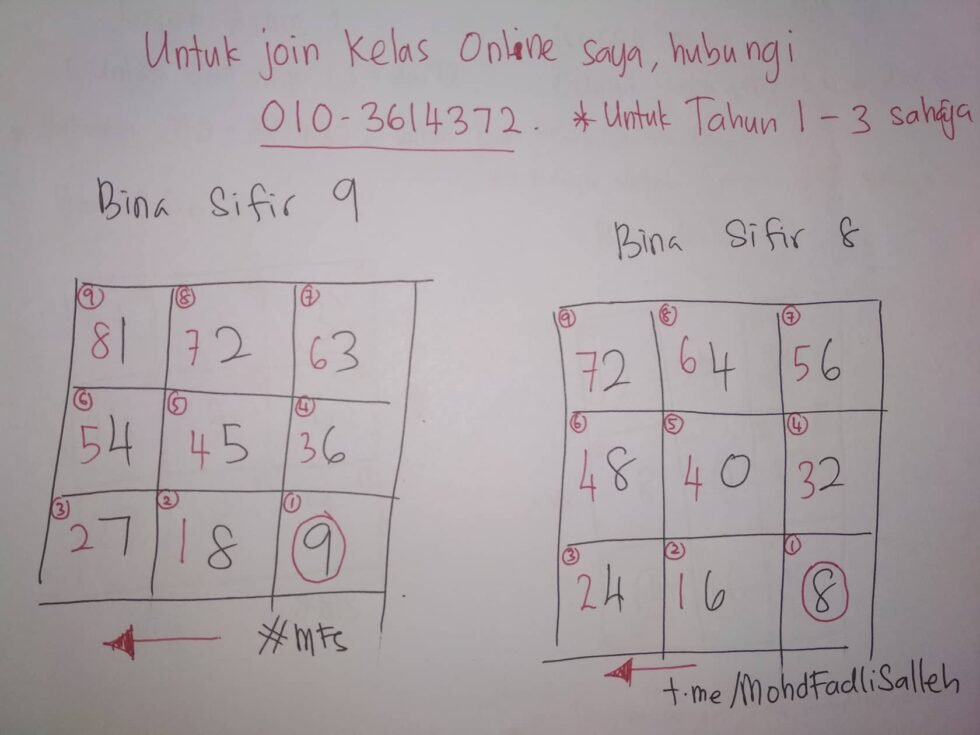 Untuk join Kelas Online saya, hubungi
010-3614372. * Untuk Tahun 1 - 3 sahaja
Bina Sifir 9
9 8 7
81 72 63
6 5 4
54 45 36
3 2 1
27 18 9
#MFS
Bina Sifir 8
9 8 7
72 64 56
6 5 4
48 40 32
3 2 1
24 16 8
t.me/MohdFadliSalleh